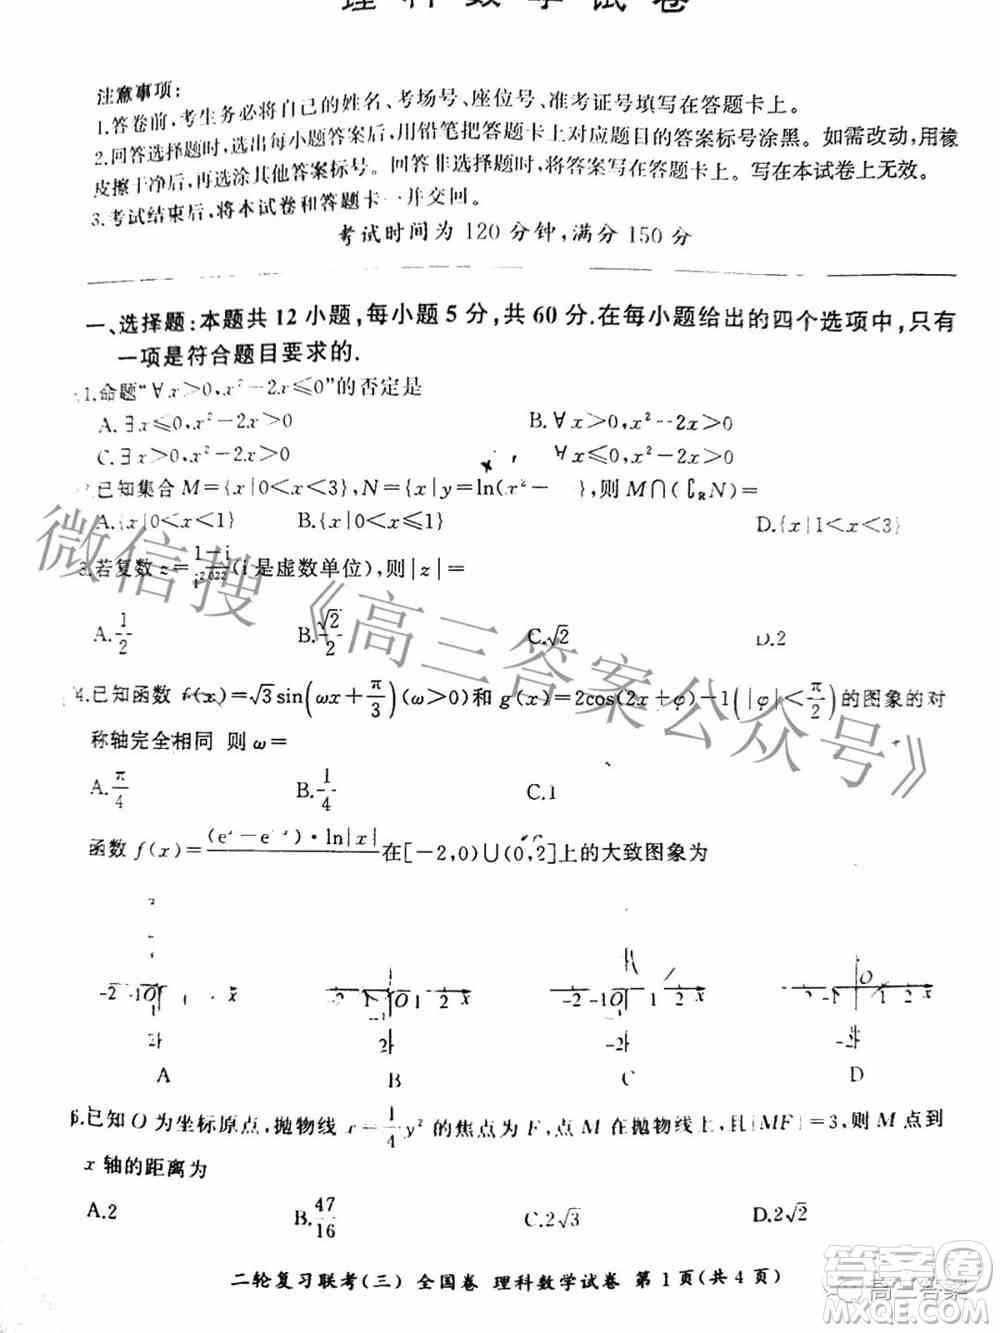 理科数学试卷
注意事项:
1.答卷前,考生务必将自己的姓名、考场号、座位号、准考证号填写在答题卡上。
2.回答选择题时,选出每小题答案后,用铅笔把答题卡上对应题目的答案标号涂黑。如需改动,用橡
皮擦干净后,再选涂其他答案标号。回答非选择题时,将答案写在答题卡上。写在本试卷上无效。
3.考试结束后,将本试卷和答题卡一并交回。
考试时间为 120 分钟,满分 150 分
一、选择题:本题共 12 小题,每小题 5 分,共 60 分.在每小题给出的四个选项中,只有
一项是符合题目要求的.
1.命题“∀x>0,x²-2x≤0”的否定是
A.∃x≤0,x²-2x>0 B.∀x>0,x²-2x>0
C.∃x>0,x²-2x>0 ∀x≤0,x²-2x>0
2.已知集合 M={x|0<x<3},N={x|y=ln(x²- )},则 M∩(∁RN)=
A.{x|0<x<1} B.{x|0<x≤1} D.{x|1<x<3}
3.若复数 z=(1-i)/i^2022(i 是虚数单位),则|z|=
A.1/2 B.√2/2 C.√2 D.2
4.已知函数 f(x)=√3sin(ωx+π/3)(ω>0)和 g(x)=2cos(2x+φ)-1(|φ|<π/2)的图象的对
称轴完全相同 则 ω=
A.π/4 B.1/4 C.1
函数 f(x)= ·ln|x| 在[-2,0)∪(0,2]上的大致图象为
-2 -1 O 1 x -2 -1 O 1 2 x -2 -1 O 1 2 x -2 -1 O 1 2 x
A B C D
6.已知 O 为坐标原点,抛物线 x=1/4 y² 的焦点为 F,点 M 在抛物线上,且|MF|=3,则 M 点到
x 轴的距离为
A.2 B.47/16 C.2√3 D.2√2
二轮复习联考(三) 全国卷 理科数学试卷 第 1 页(共 4 页)
微信搜《高三答案公众号》
答案圈
高三答案
MXQE.COM